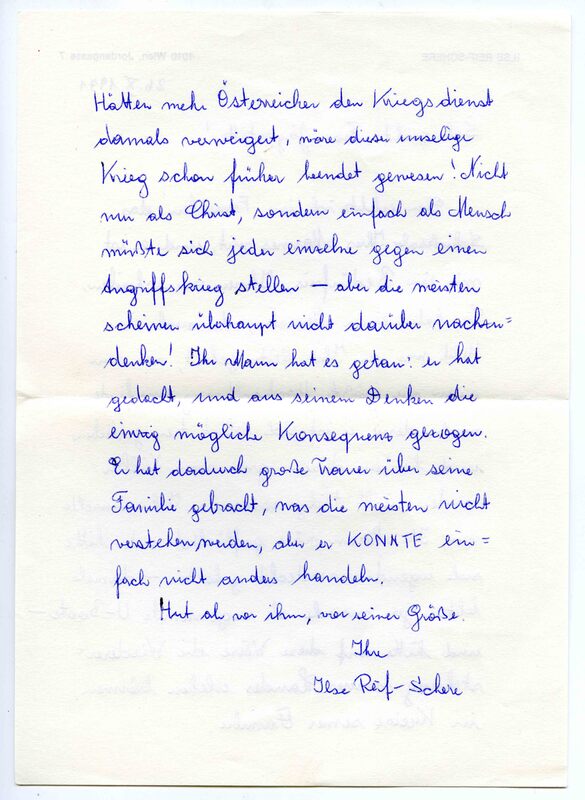 Hätten mehr Österreicher den Kriegsdienst
damals verweigert, wäre dieser unselige
Krieg schon früher beendet gewesen! Nicht
nur als Christ, sondern einfach als Mensch
müßte sich jeder einzelne gegen einen
Angriffskrieg stellen — aber die meisten
scheinen überhaupt nicht darüber nachzu=
denken! Ihr Mann hat es getan: er hat
gedacht, und aus seinem Denken die
einzig mögliche Konsequenz gezogen.
Er hat dadurch große Trauer über seine
Familie gebracht, was die meisten nicht
verstehen werden, aber er KONNTE ein=
fach nicht anders handeln.
Hut ab vor ihm, vor seiner Größe.
Ihre
Ilse Reif-Schere